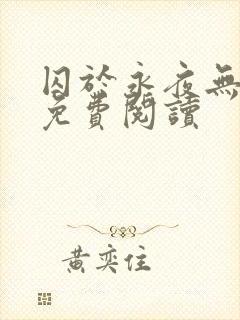 囚於永夜無
免費閱讀
黃奕住